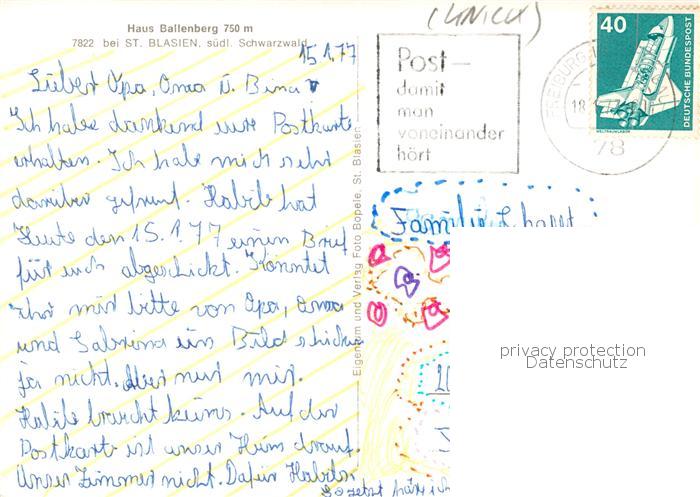 Haus Ballenberg 750 m
7822 bei ST. BLASIEN, südl. Schwarzwald
15.1.77
Lieber Opa, Oma u. Bina
Ich habe dankend eure Postkarte
erhalten. Ich habe mich sehr
darüber gefreut. Habile hat
Heute den 15.1.77 einen Brief
für euch abgeschickt. Könntet
ihr mir bitte von Opa, Oma
und Sabrina ein Bild schicken
ja nicht. Aber nur mir.
Habile braucht keins. Auf der
Postkarte ist unser Heim drauf.
Unser Zimmer nicht. Dafür Habiles
Eigentum und Verlag Foto Bopele, St. Blasien
Post-
damit
man
voneinander
hört
FREIBURG
18.
78
40
DEUTSCHE BUNDESPOST
WELTRAUMLABOR
Familie
privacy protection
Datenschutz